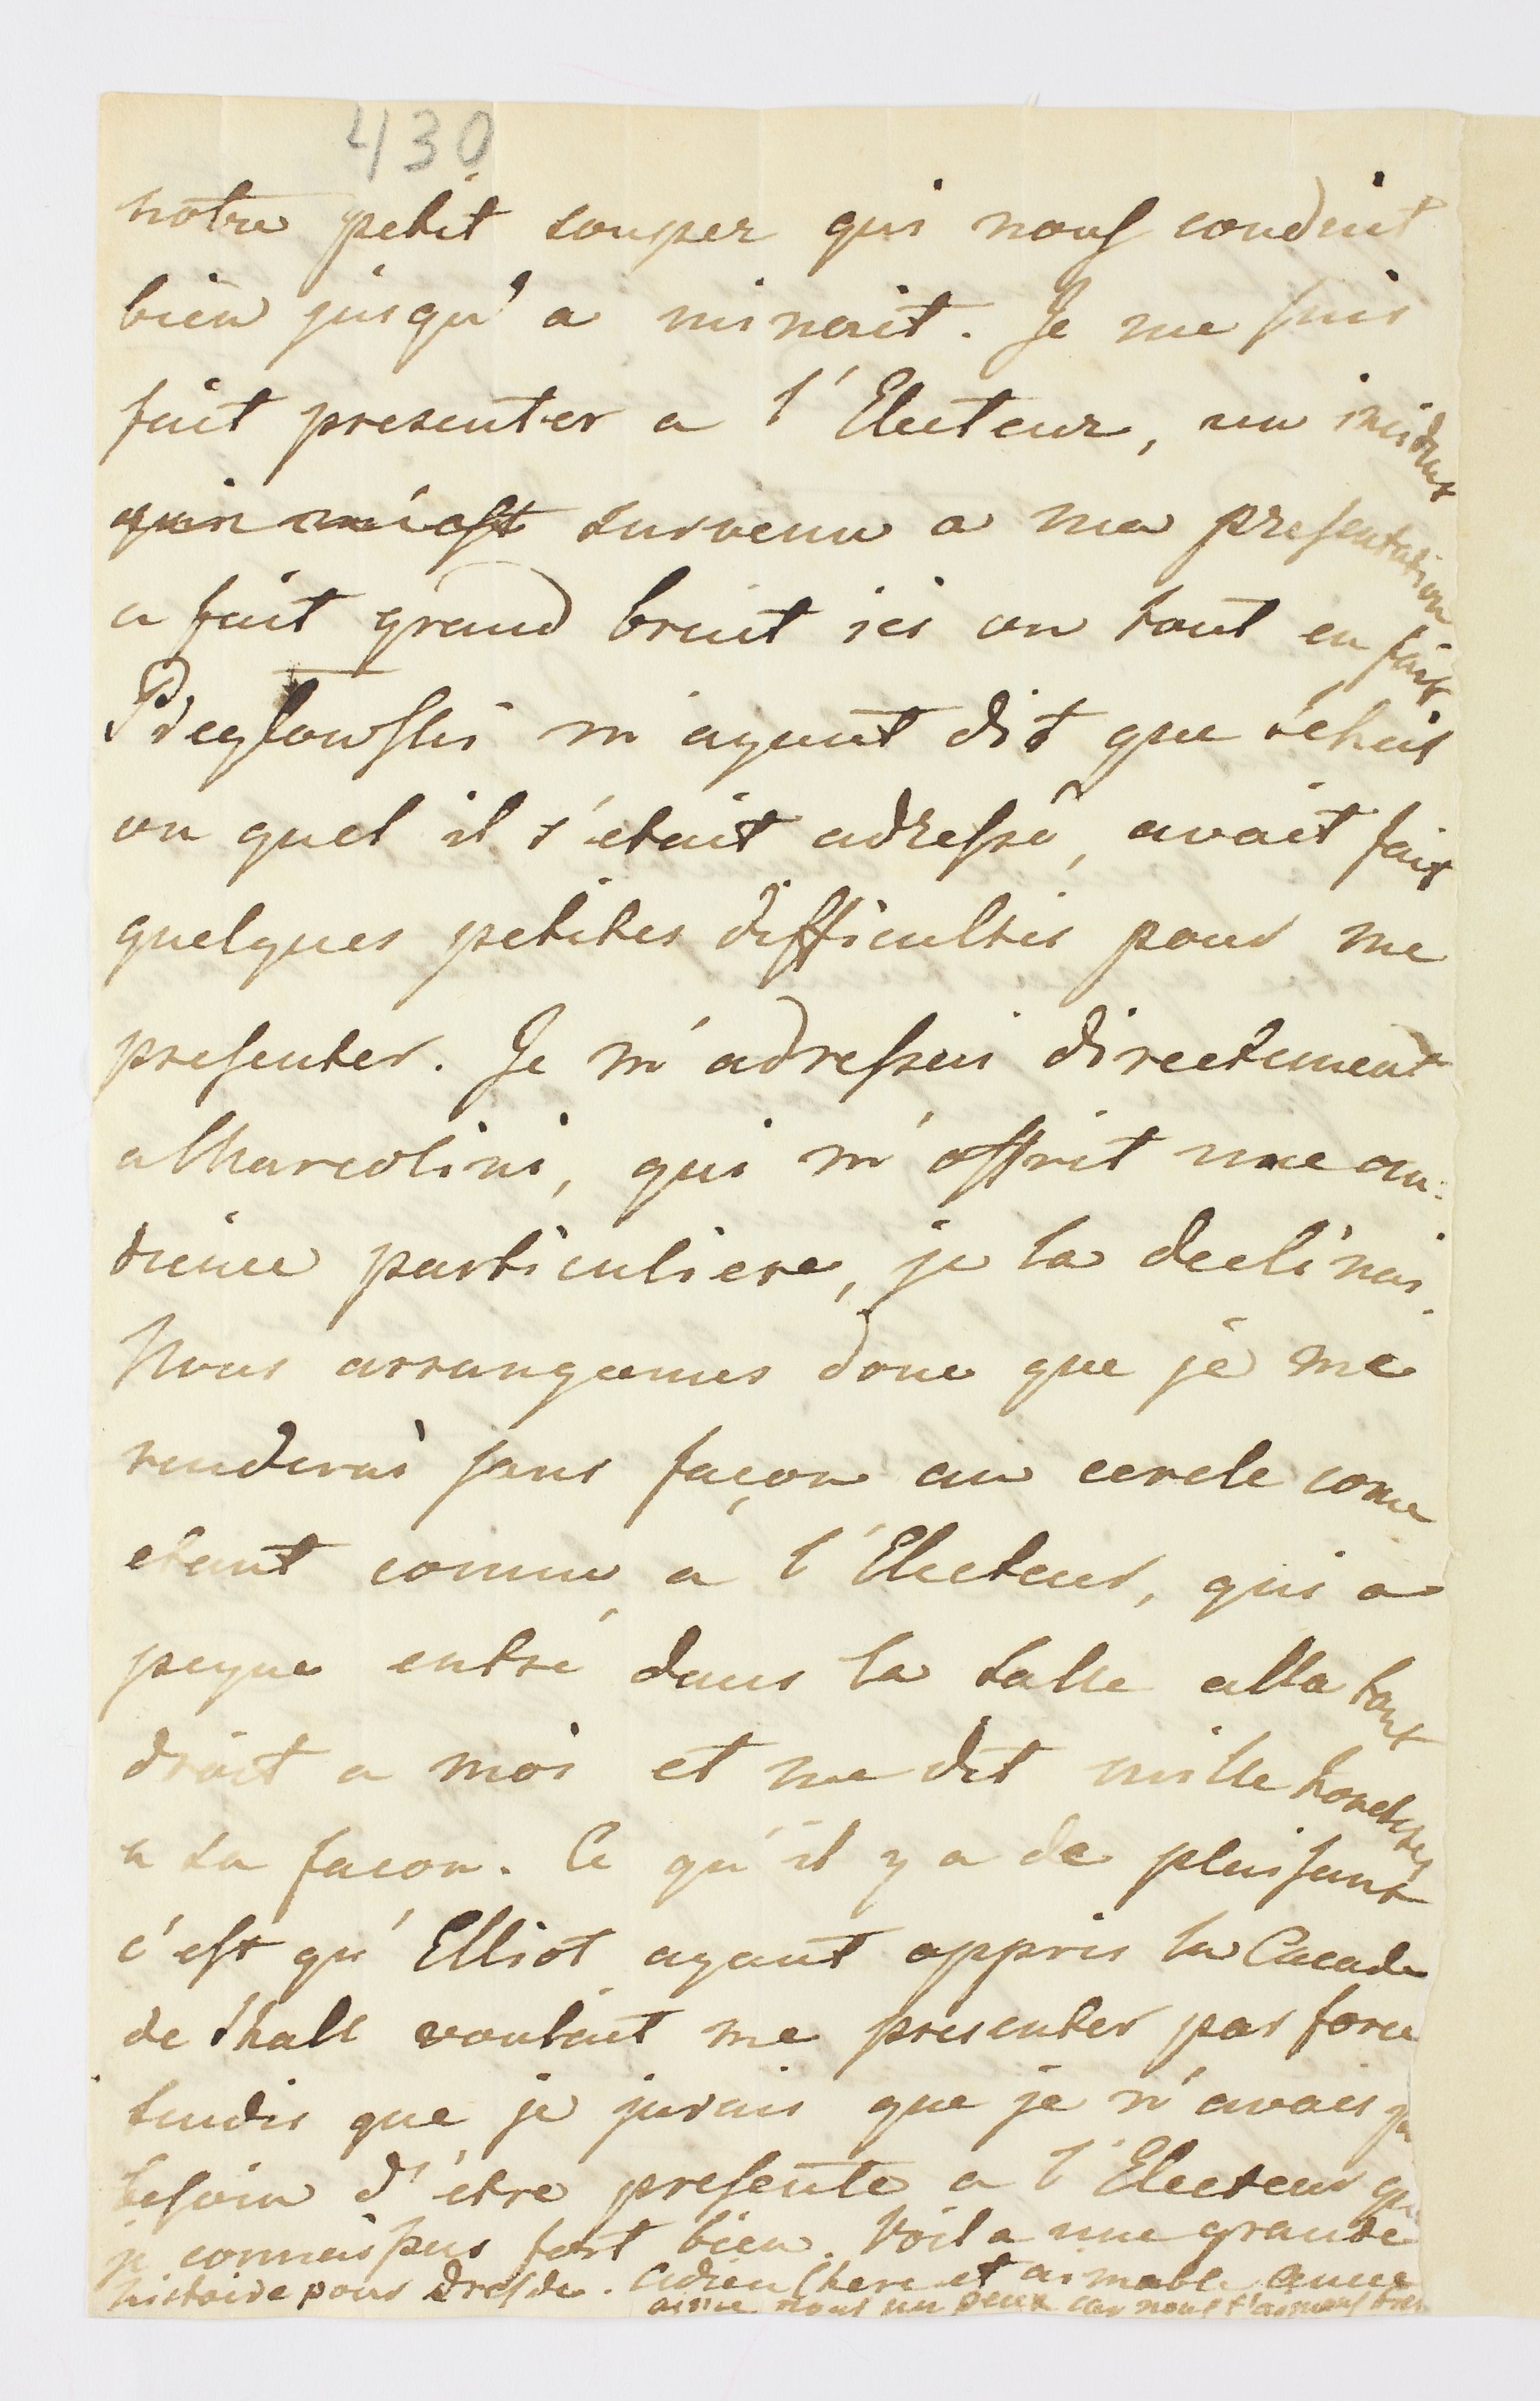 430
notre petit souper qui nous conduit
bien jusqu'a minuit. Je me suis
fait presenter a l'Electeur, un incident
qui m'est survenu a ma presentation
a fait grand bruit ici on tout en fait.
m'ayant dit que Schal
au quel il s'etait adressé, avait fait
quelques petites difficultés pour me
presenter. Je m'adressai directement
a Marcolini, qui m'offrit une au:
dience particuliere, je la declinai.
Nous arrangeames donc que je me
renderai sans façon au cercle come
etant connu a l'Electeur, qui a
peyne entré dans la salle alla tout
droit a moi et me dit mille honetetes
a sa facon. Ce qu'il y a de plaisant
c'est qu'Elliot ayant appris la Cacade
de Shall voulait me presenter par force
tandis que je jurais que je n'avais
besoin d'etre presente a l'Electeur que
je connaissais fort bien. Voila une grande
histoire pour Dresde. Adieu Chere et aimable amie
aime nous un peux car nous t'aimons bien